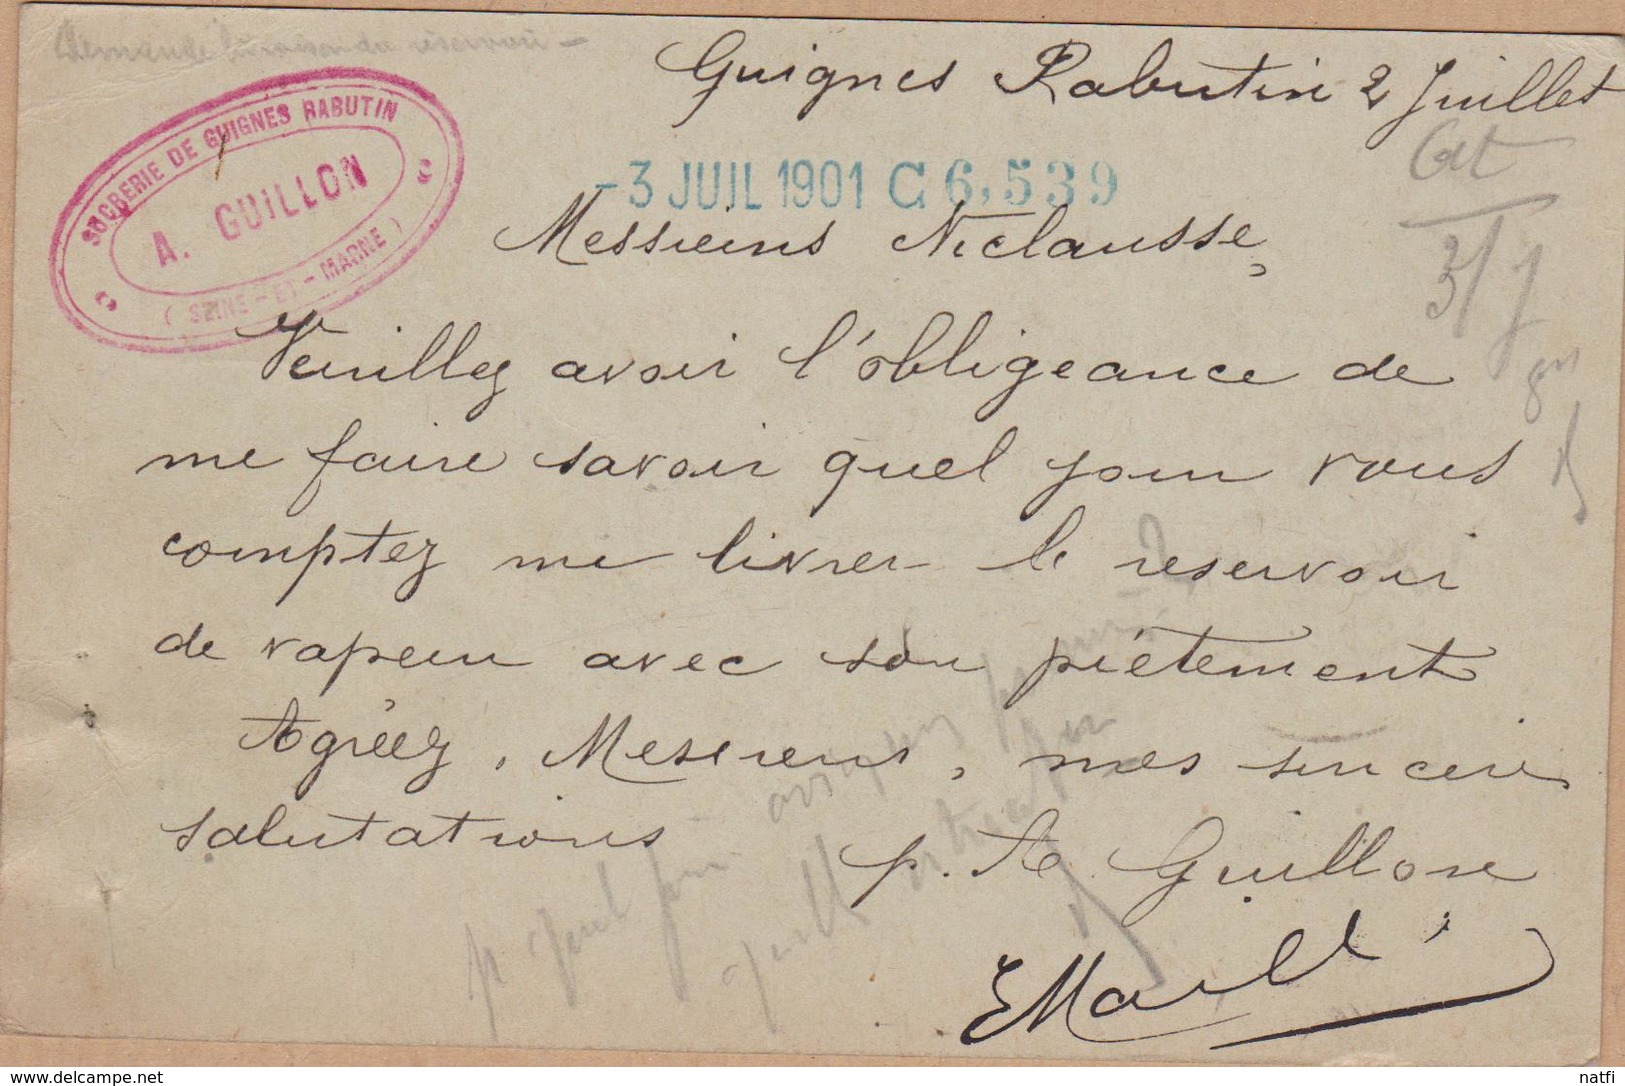 Demande livraison du réservoir -
Guignes Rabutin 2 Juillet
SUCRERIE DE GUIGNES RABUTIN
A. GUILLON
( SEINE - ET - MARNE )
-3 JUIL 1901 C 6,539
Messieurs Niclausse,
3/7
Veuillez avoir l'obligeance de
me faire savoir quel jour vous
comptez me livrer le reservoir
de vapeur avec son piétement
Agréez, Messieurs, mes sincères
salutations
p. A. Guillon
p quel jour
www.delcampe.net
natfi